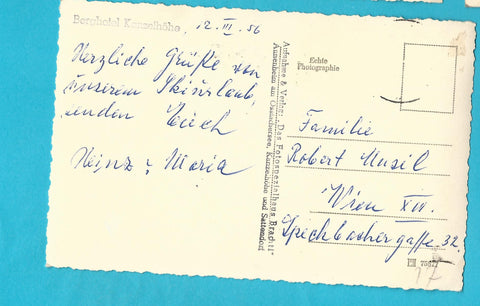 Berghotel Kanzelhöhe,
12. III. 56
Herzliche Grüße von
unserem Skiurlaub,
senden Euch
Heinz u. Maria
Aufnahme & Verlag: „Das Fotospezialhaus Brachtl“
Annenheim am Ossiachersee, Kanzelhöhe und Sattendorf
Echte
Photographie
Familie
Robert Musil
Wien XIV.
Speckbachergasse 32.